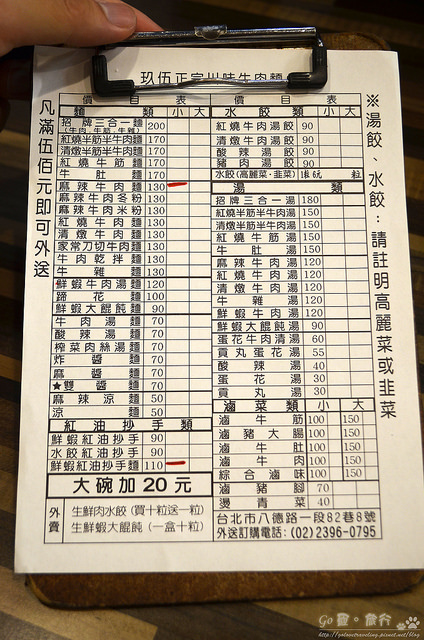 玖伍正宗川味牛肉麵
凡滿伍佰元即可外送
價目表
麵類 小 大
招牌三合一麵 200
(牛肉、牛筋、牛雜)
紅燒半筋半牛肉麵 170
清燉半筋半牛肉麵 170
紅燒牛筋麵 170
牛肚麵 170
麻辣牛肉麵 130
麻辣牛肉冬粉 130
麻辣牛肉米粉 130
紅燒牛肉麵 130
清燉牛肉麵 130
家常刀切牛肉麵 130
牛肉乾拌麵 130
牛雜麵 130
鮮蝦牛肉湯麵 120
蹄花麵 100
鮮蝦大餛飩麵 90
牛肉湯麵 70
酸辣麵 70
榨菜肉絲湯麵 70
炸醬麵 70
麻醬麵 70
★雙醬麵 70
麻辣涼麵 50
涼麵 50
紅油抄手類
鮮蝦紅油抄手 90
水餃紅油抄手 90
鮮蝦紅油抄手麵 110
大碗加20元
外賣
生鮮肉水餃(買十粒送一粒)
生鮮蝦大餛飩(一盒十粒)
價目表
水餃類 小 大
紅燒牛肉湯餃 90
清燉牛肉湯餃 90
酸辣湯餃 90
豬肉湯餃 90
水餃(高麗菜、韭菜) 粒
湯類
招牌三合一湯 180
紅燒半筋半牛湯 150
清燉半筋半牛湯 150
紅燒牛筋湯 150
牛肚湯 150
麻辣牛肉湯 120
紅燒牛肉湯 120
清燉牛肉湯 120
牛雜湯 120
鮮蝦牛肉湯 120
鮮蝦大餛飩湯 90
蛋花牛肉清湯 60
貢丸蛋花湯 55
酸辣湯 40
蛋花湯 30
貢丸湯 30
滷菜類 小 大
滷牛筋 100 150
滷豬大腸 100 150
滷牛肚 100 150
滷牛肉 100 150
綜合滷味 100 150
滷豬腳 70
燙青菜 40
台北市八德路一段82巷8號
外送訂購電話:(02)2396-0795
※湯餃、水餃:請註明高麗菜或韭菜
http://yolovetraveling.pixnet.net/blog